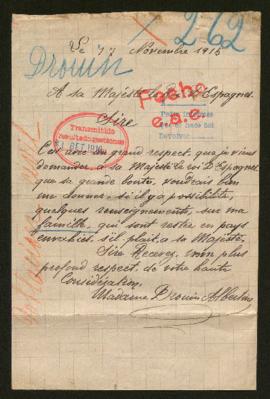 262
Le 7 Novembre 1915
Drouin
A sa Majesté le roi d'Espagnes.
Fecha
e.a.e.
Sire
Transmitido
C'est avec un grand respect que je viens
demander a sa Majesté le roi D'Espagnes
que sa grande bonté, voudrais bien
me donner, si il y a possibilité,
quelques renseignements, sur ma
famille, qui sont restée en pays
envahies. s'il plait, a sa Majesté.
Sire Recevez, mon plus
profond respect, de votre haute
Considération.
Madame Drouin Albertine